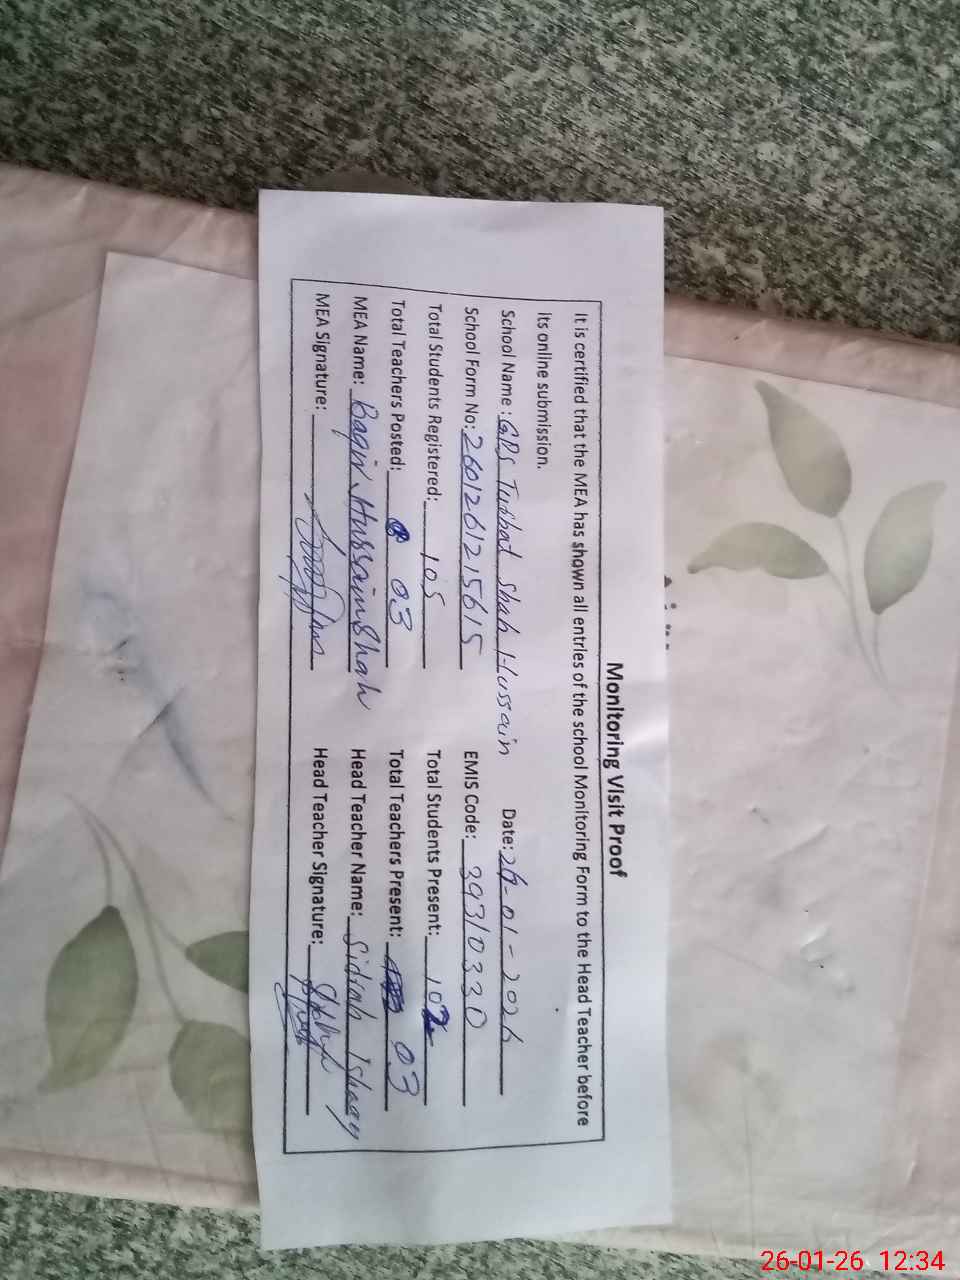 Monitoring Visit Proof
It is certified that the MEA has shown all entries of the school Monitoring Form to the Head Teacher before
its online submission.
School Name: GPS Turbat Shah Hussain Date: 26-01-2026
School Form No: 2601261215615 EMIS Code: 39310330
Total Students Registered: 105 Total Students Present: 102
Total Teachers Posted: 03 Total Teachers Present: 03
MEA Name: Baqir Hussain Shah Head Teacher Name: Sidrah Ishaqy
MEA Signature: Head Teacher Signature:
26-01-26 12:34